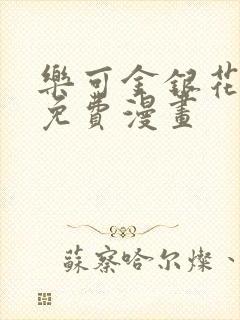 樂可金銀花
免費漫畫
蘇察哈尔燦、